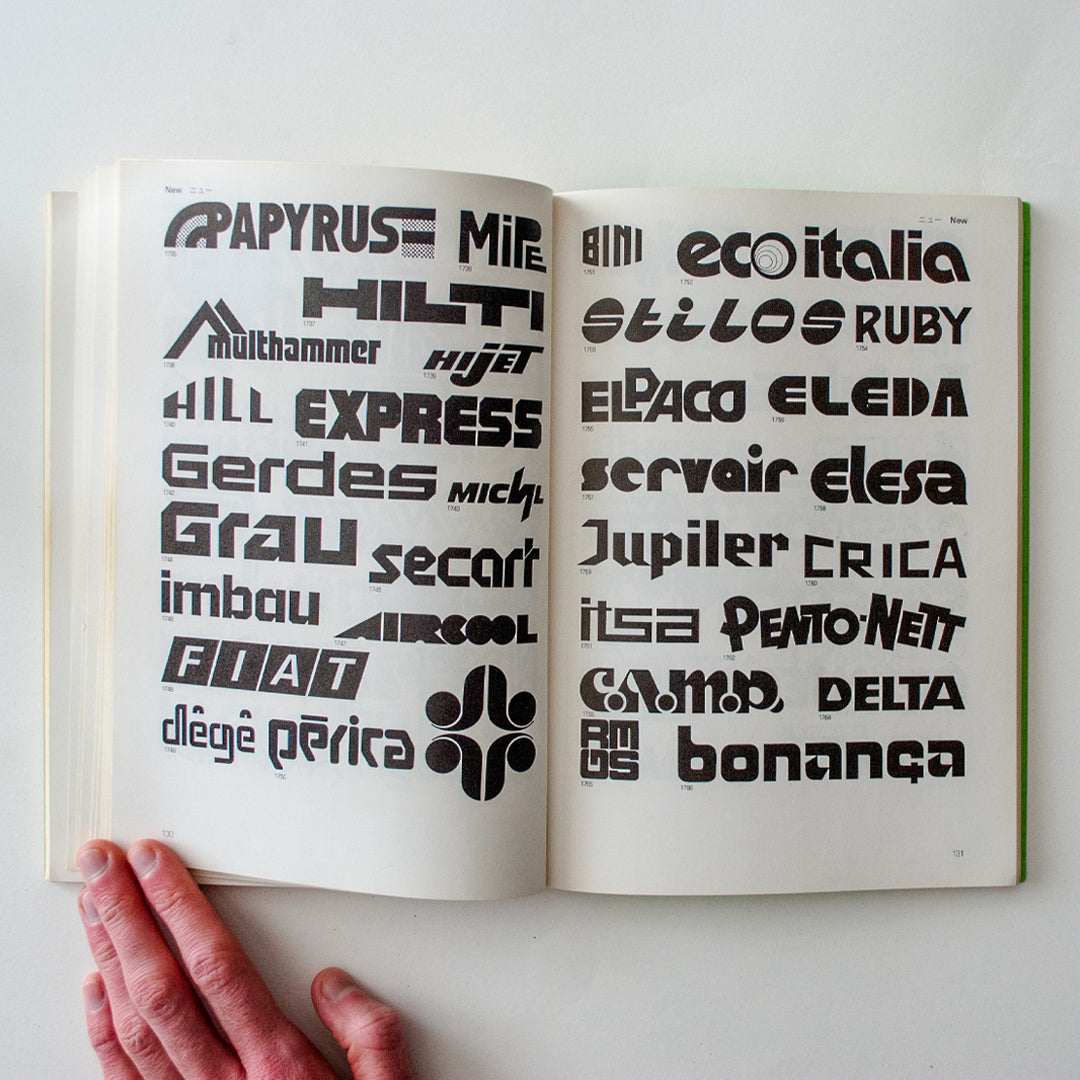 New ニュー
PAPYRUS MiPE
1735 1736
HILTI
1737
multhammer HijET
1738 1739
HILL EXPRESS
1740 1741
Gerdes MICHL
1742 1743
Grau secart
1744 1745
imbau AIRCOOL
1746 1747
FIAT
1748
dêgê pērica
1749 1750
130
ニュー New
BINI ecoitalia
1751 1752
stilos RUBY
1753 1754
ELPACO ELEDA
1755 1756
servair elesa
1757 1758
Jupiler CRICA
1759 1760
itsa PENTO-NETT
1761 1762
c.a.m.p. DELTA
1763 1764
RM
GS bonança
1765 1766
131